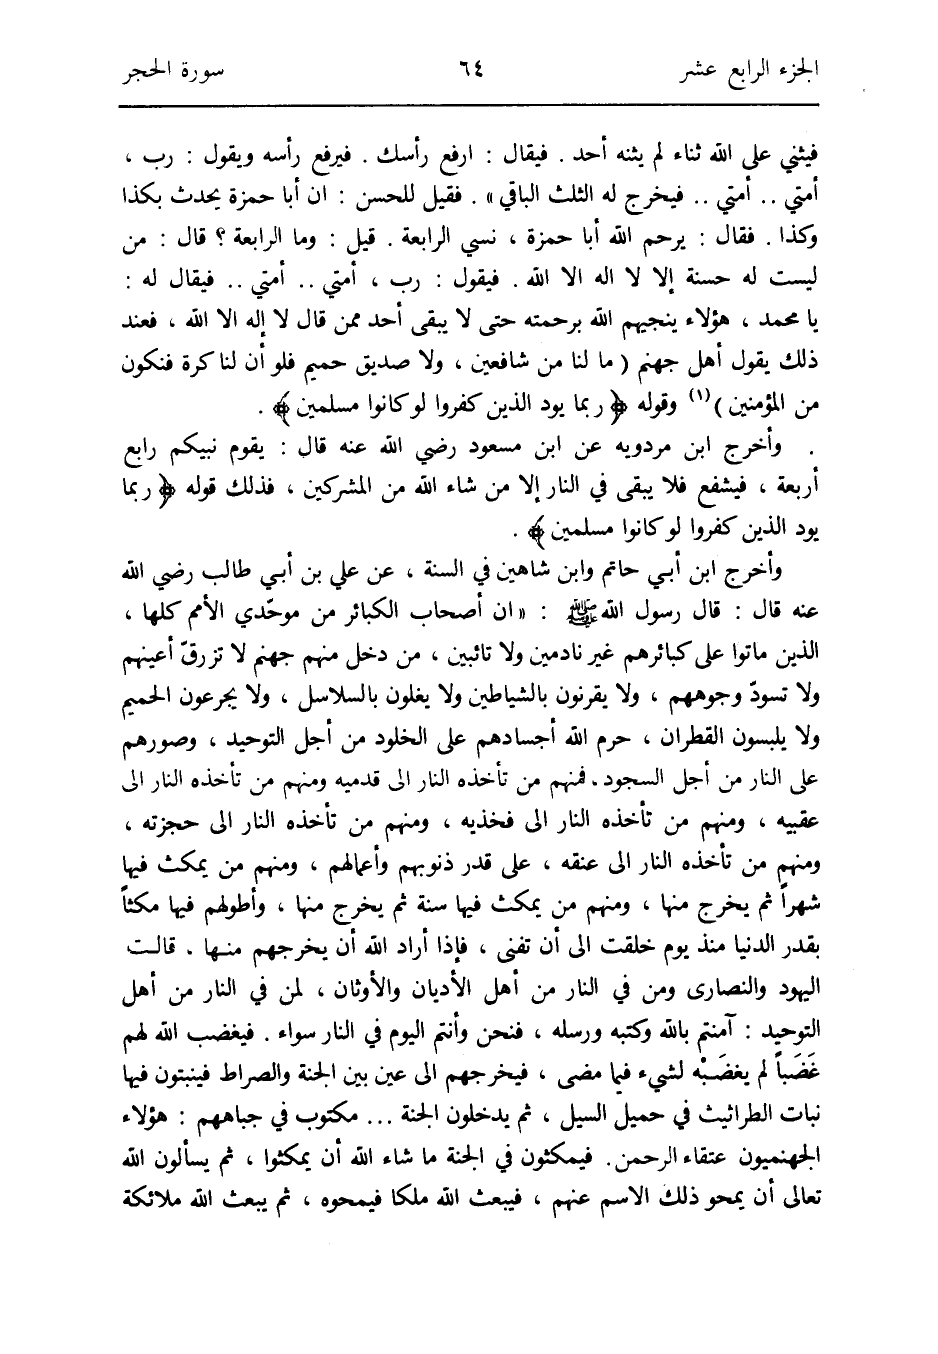 الجزء الرابع عشر ٦٤ سورة الحجر
فيثني على الله ثناء لم يثنه أحد . فيقال : ارفع رأسك . فيرفع رأسه ويقول : رب ،
أمتي .. أمتي .. فيخرج له الثلث الباقي » . فقيل للحسن : ان أبا حمزة يحدث بكذا
وكذا . فقال : يرحم الله أبا حمزة ، نسي الرابعة . قيل : وما الرابعة ؟ قال : من
ليست له حسنة إلا لا اله الا الله . فيقول : رب ، أمتي .. أمتي .. فيقال له :
يا محمد ، هؤلاء ينجيهم الله برحمته حتى لا يبقى أحد ممن قال لا إله الا الله ، فعند
ذلك يقول أهل جهنم ( ما لنا من شافعين ، ولا صديق حميم فلو أن لنا كرة فنكون
من المؤمنين )(١) وقوله ﴿ ربما يود الذين كفروا لو كانوا مسلمين ﴾ .
. وأخرج ابن مردويه عن ابن مسعود رضي الله عنه قال : يقوم نبيكم رابع
أربعة ، فيشفع فلا يبقى في النار إلا من شاء الله من المشركين ، فذلك قوله ﴿ ربما
يود الذين كفروا لو كانوا مسلمين ﴾ .
وأخرج ابن أبي حاتم وابن شاهين في السنة ، عن علي بن أبي طالب رضي الله
عنه قال : قال رسول الله ﷺ : « ان أصحاب الكبائر من موحّدي الأمم كلها ،
الذين ماتوا على كبائرهم غير نادمين ولا تائبين ، من دخل منهم جهنم لا تزرقّ أعينهم
ولا تسودّ وجوههم ، ولا يقرنون بالشياطين ولا يغلون بالسلاسل ، ولا يجرعون الحميم
ولا يلبسون القطران ، حرم الله أجسادهم على الخلود من أجل التوحيد ، وصورهم
على النار من أجل السجود . فمنهم من تأخذه النار الى قدميه ومنهم من تأخذه النار الى
عقبيه ، ومنهم من تأخذه النار الى فخذيه ، ومنهم من تأخذه النار الى حجزته ،
ومنهم من تأخذه النار الى عنقه ، على قدر ذنوبهم وأعمالهم ، ومنهم من يمكث فيها
شهراً ثم يخرج منها ، ومنهم من يمكث فيها سنة ثم يخرج منها ، وأطولهم فيها مكثاً
بقدر الدنيا منذ يوم خلقت الى أن تفنى ، فإذا أراد الله أن يخرجهم منها . قالت
اليهود والنصارى ومن في النار من أهل الأديان والأوثان ، لمن في النار من أهل
التوحيد : آمنتم بالله وكتبه ورسله ، فنحن وأنتم اليوم في النار سواء . فيغضب الله لهم
غَضَباً لم يغضَبْه لشيء فيما مضى ، فيخرجهم الى عين بين الجنة والصراط فينبتون فيها
نبات الطراثيث في حميل السيل ، ثم يدخلون الجنة ... مكتوب في جباههم : هؤلاء
الجهنميون عتقاء الرحمن . فيمكثون في الجنة ما شاء الله أن يمكثوا ، ثم يسألون الله
تعالى أن يمحو ذلك الاسم عنهم ، فيبعث الله ملكا فيمحوه ، ثم يبعث الله ملائكة